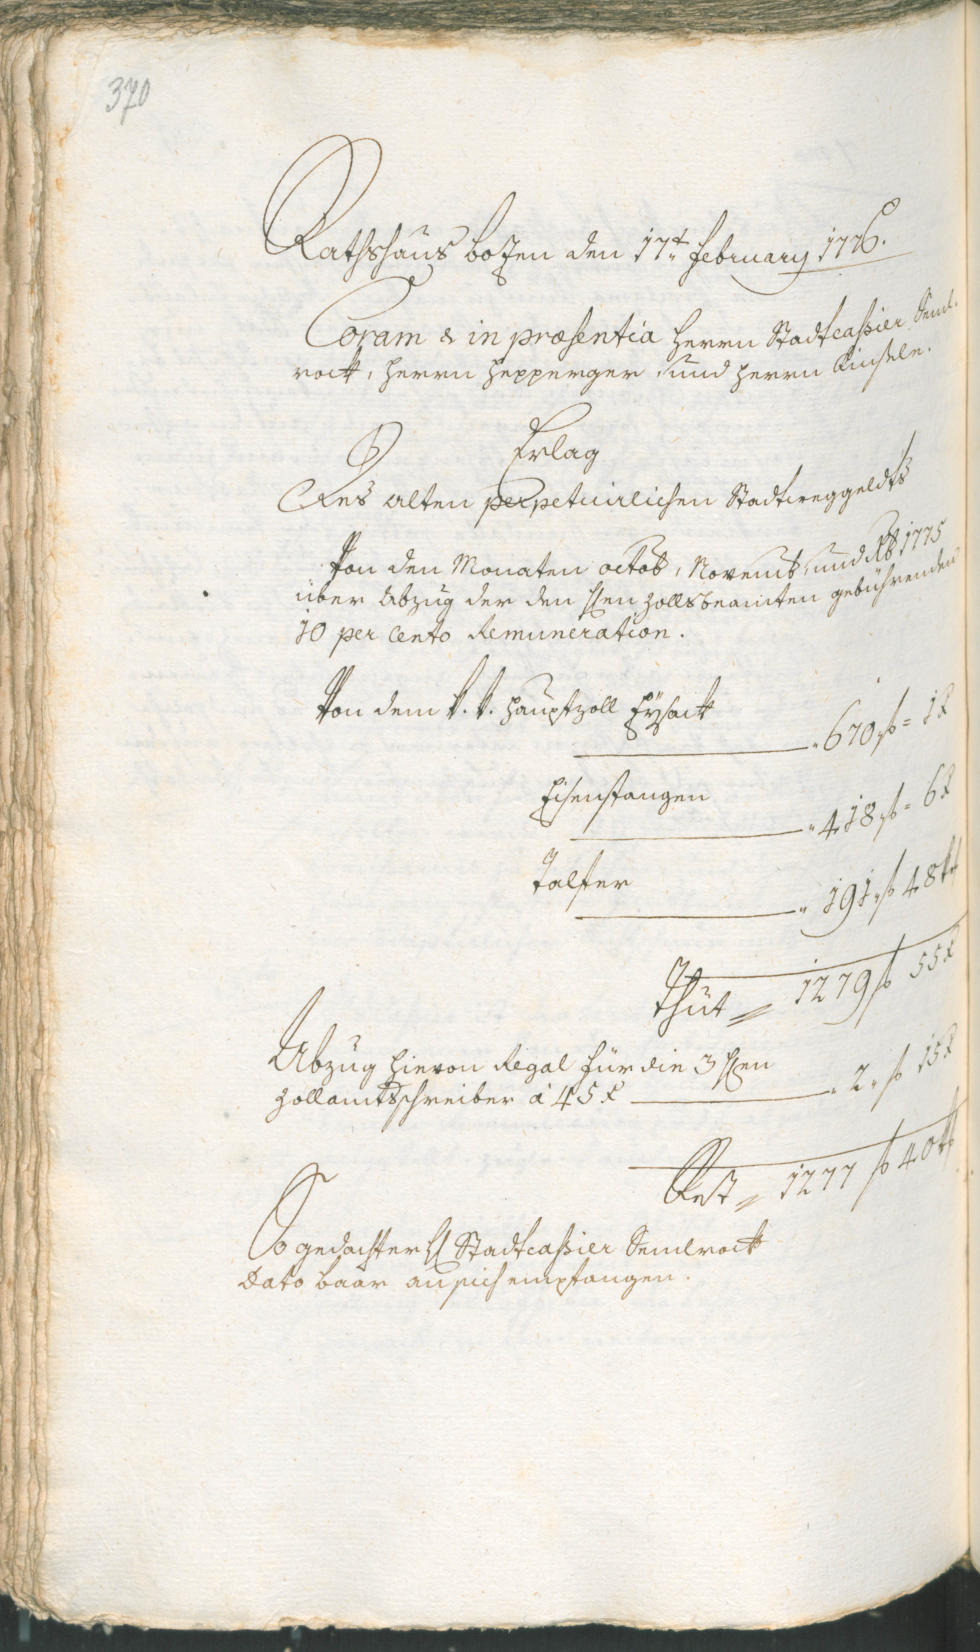 370
Rathshaus Bozen den 17.t February 1776.
Coram & in præsentia Herrn Stadtcaßier Seml-
rock, Herrn Hepperger und Herrn Kinsele.
Erlag
Des alten perpetuirlichen Stadtweggeldts
Von den Monaten Octob, Novemb, und Xb 1775
über Abzug der den Hen Zollsbeamten gebührenden
10 per Cento Remuneration.
Von dem k. k. Hauptzoll Eysack
670 f = 1 x
Eisenstangen
418 f = 6 x
Talfer
191 f 48 x
Thut 1279 f 55 x
Abzug hievon Regal für die 3 Hen
Zollamtsschreiber à 45 x 2 f 15 x
Rest 1277 f 40 x
So gedachter H Stadtcaßier Semlrock
Dato baar an sich empfangen.